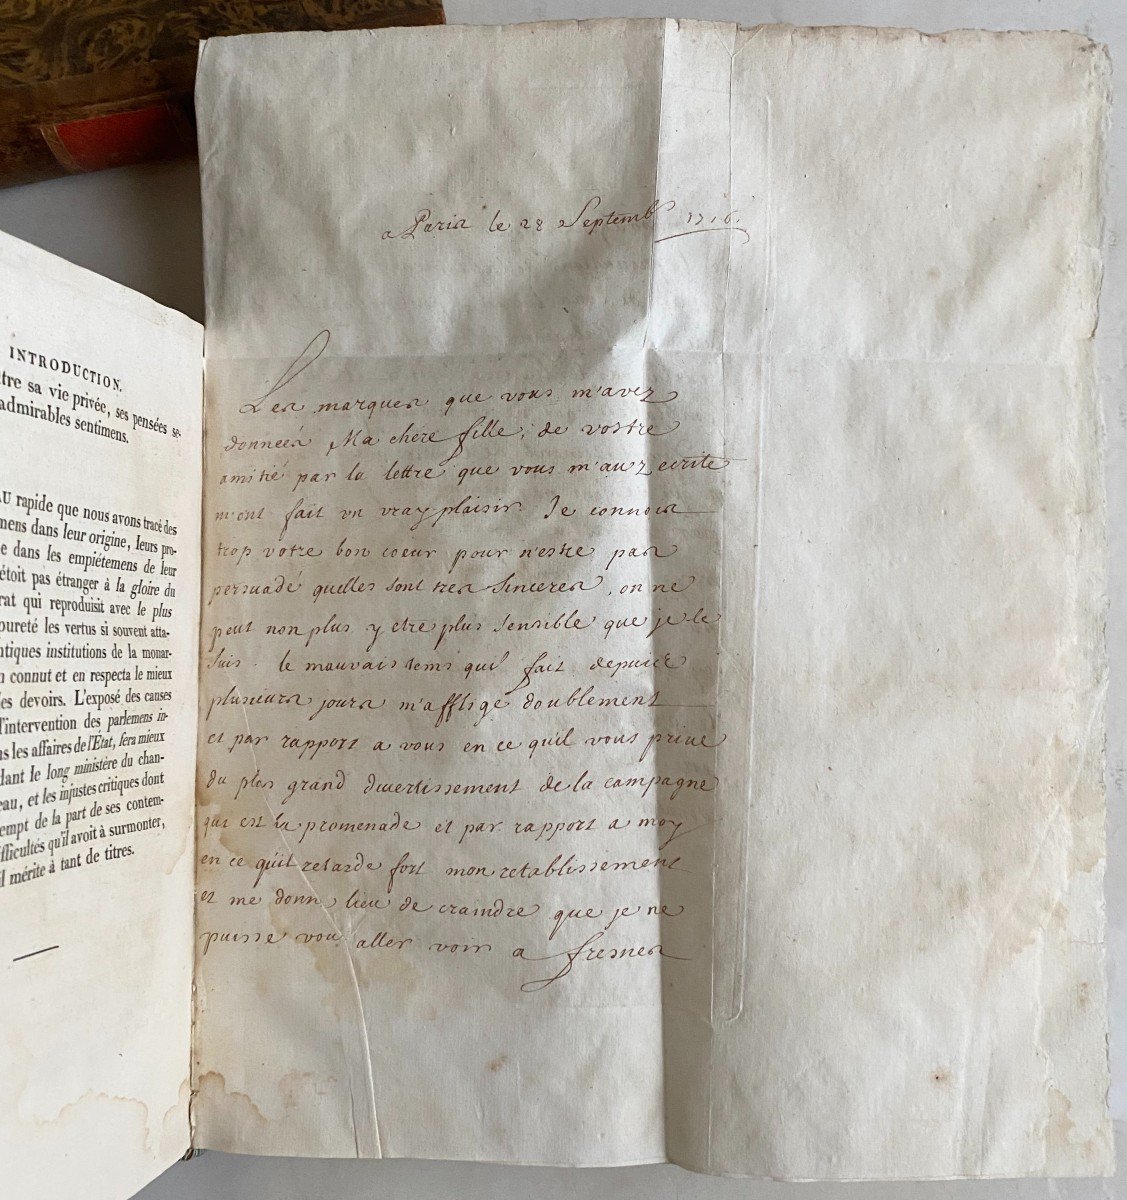 INTRODUCTION.
tre sa vie privée, ses pensées se-
admirables sentimens.
AU rapide que nous avons tracé des
mens dans leur origine, leurs pro-
e dans les empiétemens de leur
étoit pas étranger à la gloire du
rat qui reproduisit avec le plus
pureté les vertus si souvent atta-
ntiques institutions de la monar-
n connut et en respecta le mieux
les devoirs. L'exposé des causes
l'intervention des parlemens in-
ns les affaires de l'État, fera mieux
dant le long ministère du chan-
eau, et les injustes critiques dont
empt de la part de ses contem-
fficultés qu'il avoit à surmonter,
il mérite à tant de titres.
a Paris le 28 Septemb 1716.
Les marques que vous m'avez
données Ma chere fille, de vostre
amitié par la lettre que vous m'avez ecrite
m'ont fait un vray plaisir. Je connois
trop votre bon coeur pour n'estre pas
persuadé quelles sont tres sinceres, on ne
peut non plus y etre plus sensible que je le
suis. le mauvais tems quil fait depuis
plusieurs jours m'afflige doublement
et par rapport a vous en ce qu'il vous prive
du plus grand divertissement de la campagne
qui est la promenade et par rapport a moy
en ce qu'il retarde fort mon retablissement
et me donn lieu de craindre que je ne
puisse vou aller voir a fresnes